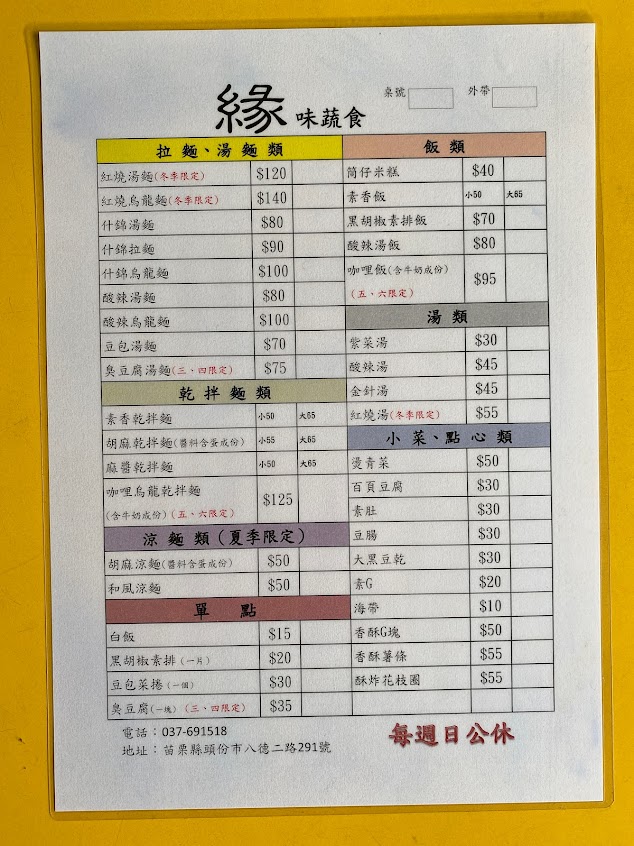 桌號
外帶
緣 味蔬食
拉麵、湯麵類
紅燒湯麵(冬季限定) $120
紅燒烏龍麵(冬季限定) $140
什錦湯麵 $80
什錦拉麵 $90
什錦烏龍麵 $100
酸辣湯麵 $80
酸辣烏龍麵 $100
豆包湯麵 $70
臭豆腐湯麵(三、四限定) $75
乾拌麵類
素香乾拌麵 小50 大65
胡麻乾拌麵(醬料含蛋成份) 小55 大65
麻醬乾拌麵 小50 大65
咖哩烏龍乾拌麵
(含牛奶成份)(五、六限定) $125
涼麵類(夏季限定)
胡麻涼麵(醬料含蛋成份) $50
和風涼麵 $50
單點
白飯 $15
黑胡椒素排(一片) $20
豆包菜捲(一個) $30
臭豆腐(一塊)(三、四限定) $35
飯類
筒仔米糕 $40
素香飯 小50 大65
黑胡椒素排飯 $70
酸辣湯飯 $80
咖哩飯(含牛奶成份)
(五、六限定) $95
湯類
紫菜湯 $30
酸辣湯 $45
金針湯 $45
紅燒湯(冬季限定) $55
小菜、點心類
燙青菜 $50
百頁豆腐 $30
素肚 $30
豆腸 $30
大黑豆乾 $30
素G $20
海帶 $10
香酥G塊 $50
香酥薯條 $55
酥炸花枝圈 $55
電話：037-691518
地址：苗栗縣頭份市八德二路291號
每週日公休